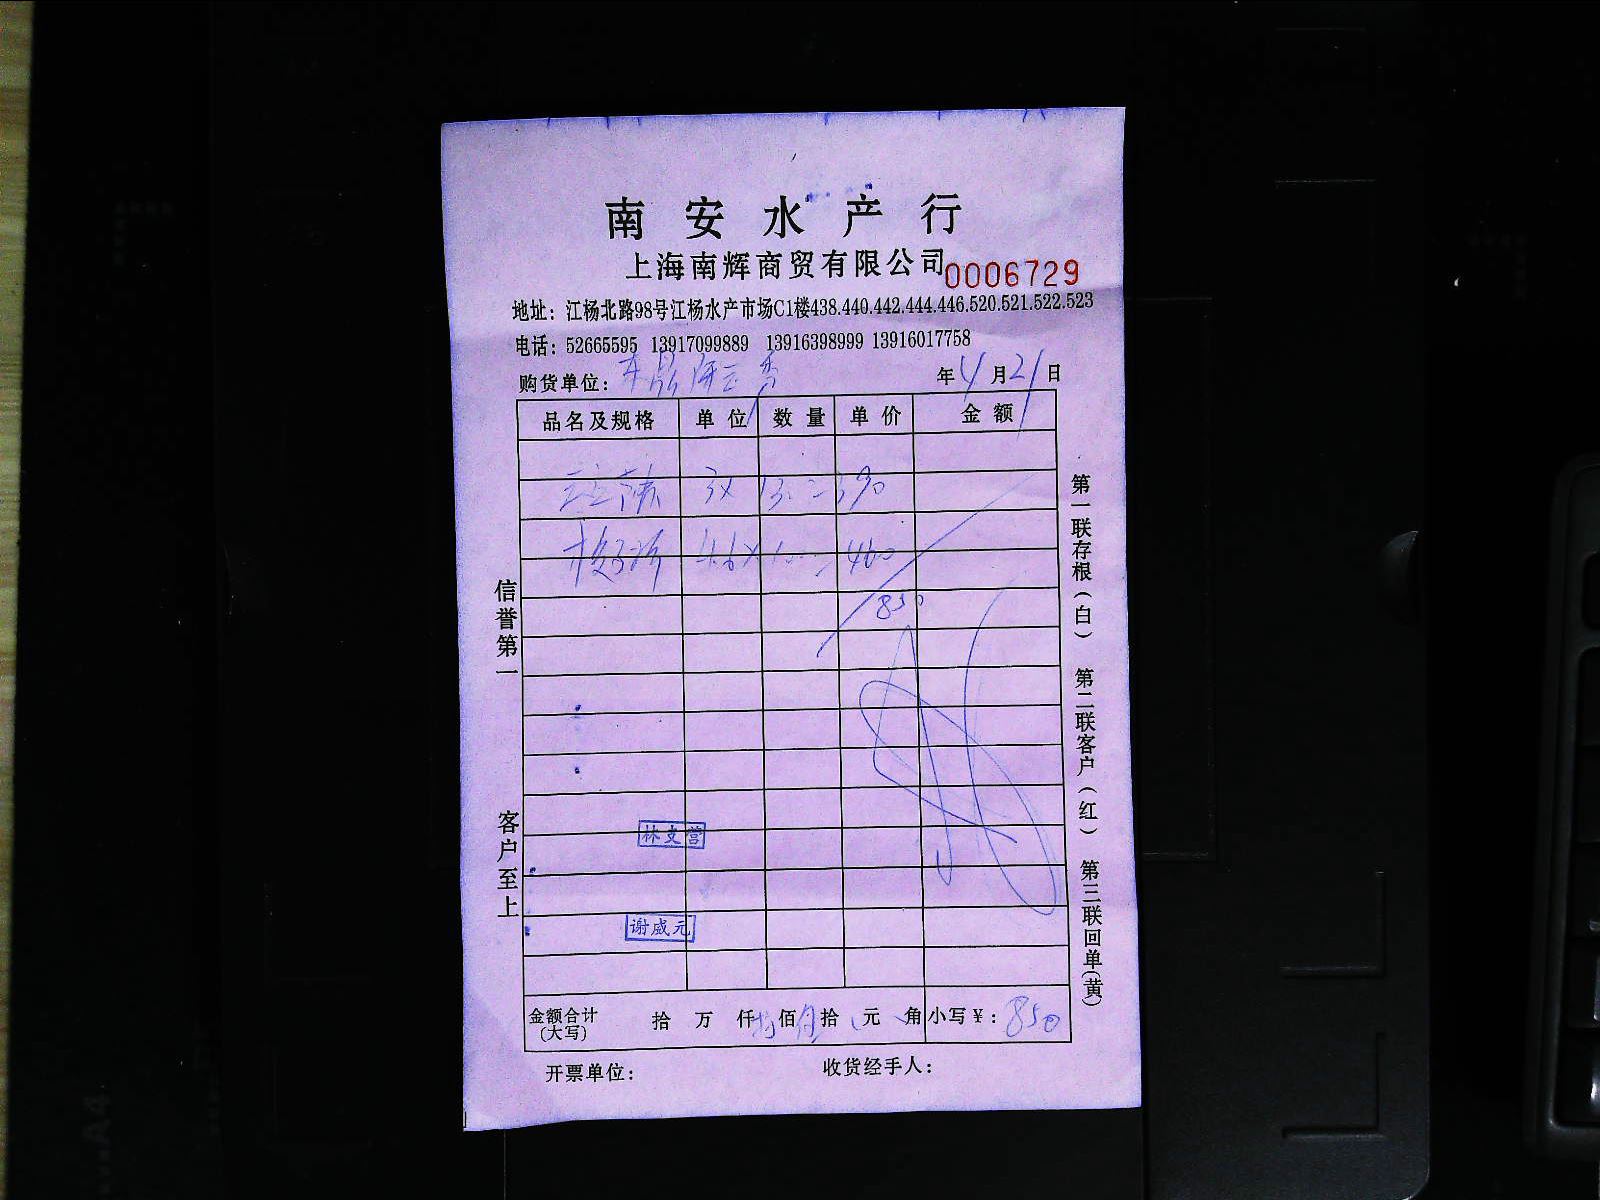 南安水产行
上海南辉商贸有限公司 0006729
地址：江杨北路98号江杨水产市场C1楼438.440.442.444.446.520.521.522.523
电话：52665595 13917099889 13916398999 13916017758
购货单位： 年4月21日
品名及规格 单位 数量 单价 金额
3x 130=390
4.6x100=460
850
林支营
谢威元
金额合计(大写) 拾 万 仟 捌佰 伍拾 元 角 小写￥：850
开票单位： 收货经手人：
信誉第一 客户至上
第一联存根(白) 第二联客户(红) 第三联回单(黄)